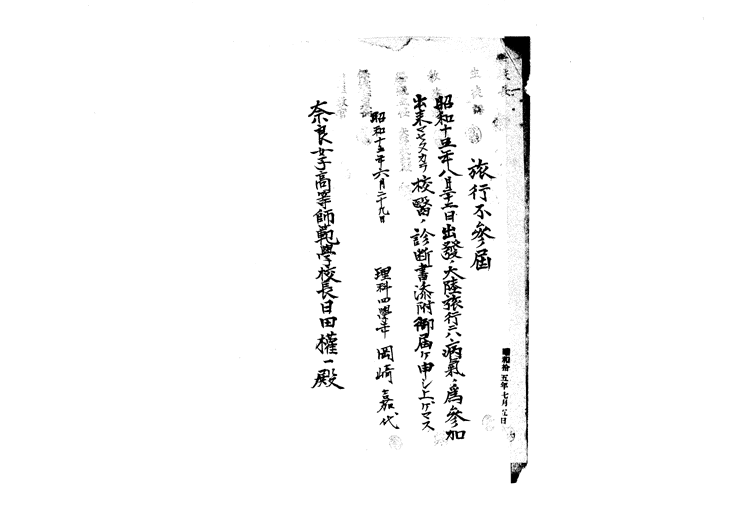 旅行不參屆
昭和十五年八月二十二日出發ノ大陸旅行ニハ病氣ノ爲參加
出来マセヌカラ校醫ノ診断書添附御届ケ申シ上ゲマス
昭和十五年六月二十九日
理科四學年 岡崎嘉代
奈良女子高等師範學校長日田權一殿
昭和拾五年七月 日